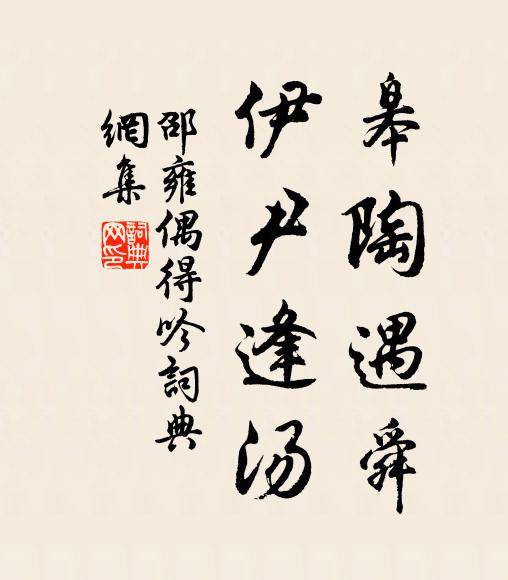 皋陶遇舜
伊尹逢汤
邵雍偶得吟詞典
網集
詞典网印